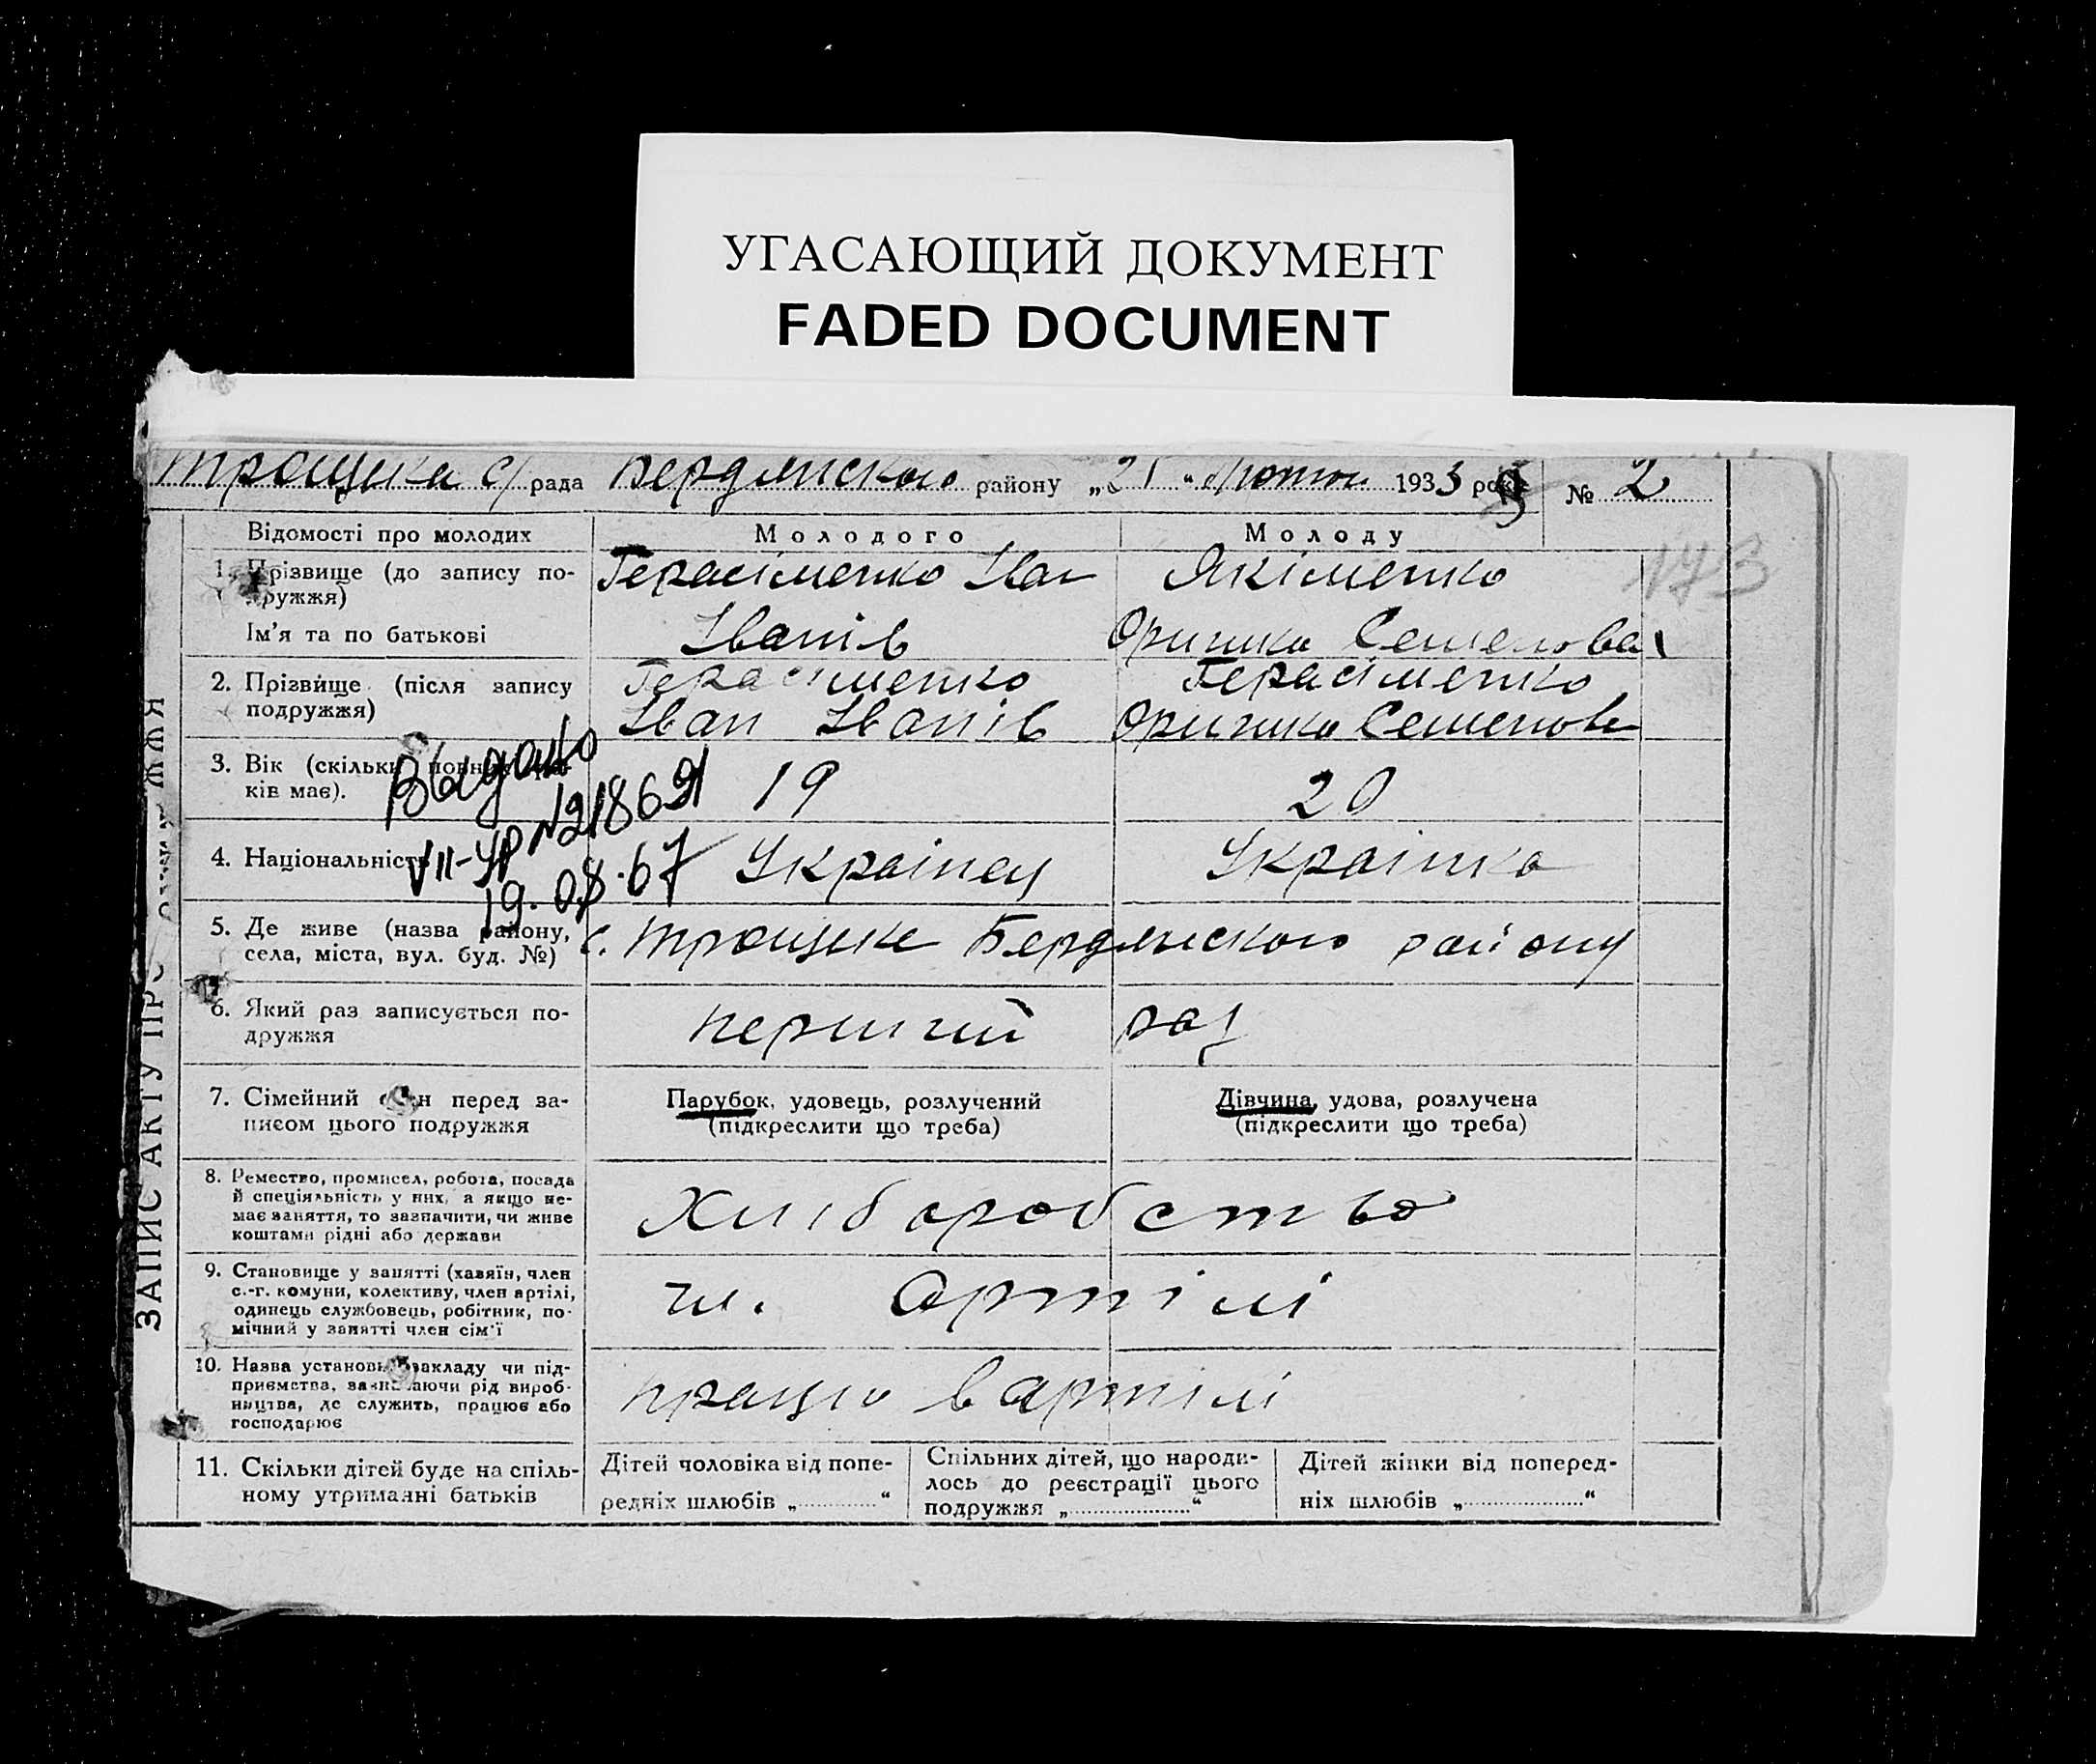 УГАСАЮЩИЙ ДОКУМЕНТ
FADED DOCUMENT
Троцька с/рада Бердянського району „21“ 1933 року № 2
173
ЗАПИС АКТУ ПРО
Відомості про молодих Молодого Молоду
1. Прізвище (до запису по- Герасіменко Іван Якіменко
дружжя)
Ім'я та по батькові Іванів Оришка Семенова
2. Прізвище (після запису Герасіменко Герасіменко
подружжя) Іван Іванів Оришка Семенов
3. Вік (скільки повних ро- 19 20
ків має).
Выдано
VII-УР №218691
19.08.67
4. Національність Українец Українка
5. Де живе (назва району, с. Троцьке Бердянського району
села, міста, вул. буд. №)
6. Який раз записується по- перший раз
дружжя
7. Сімейний стан перед за- Парубок, удовець, розлучений Дівчина, удова, розлучена
писом цього подружжя (підкреслити що треба) (підкреслити що треба)
8. Ремество, промисел, робота, посада
й спеціяльність у них, а якщо не-
має заняття, то зазначити, чи живе Хліборобство
коштами рідні або держави
9. Становище у занятті (хазяїн, член
с.-г. комуни, колективу, член артілі, чл. Артілі
одинець службовець, робітник, по-
мічний у занятті член сім'ї
10. Назва установи, закладу чи під-
приємства, зазначаючи рід вироб- працю в артілі
ництва, де служить, працює або
господарює
11. Скільки дітей буде на спіль- Дітей чоловіка від попе- Спільних дітей, що народи- Дітей жінки від поперед-
ному утриманні батьків редніх шлюбів „ “ лось до реєстрації цього ніх шлюбів „ “
подружжя „ “